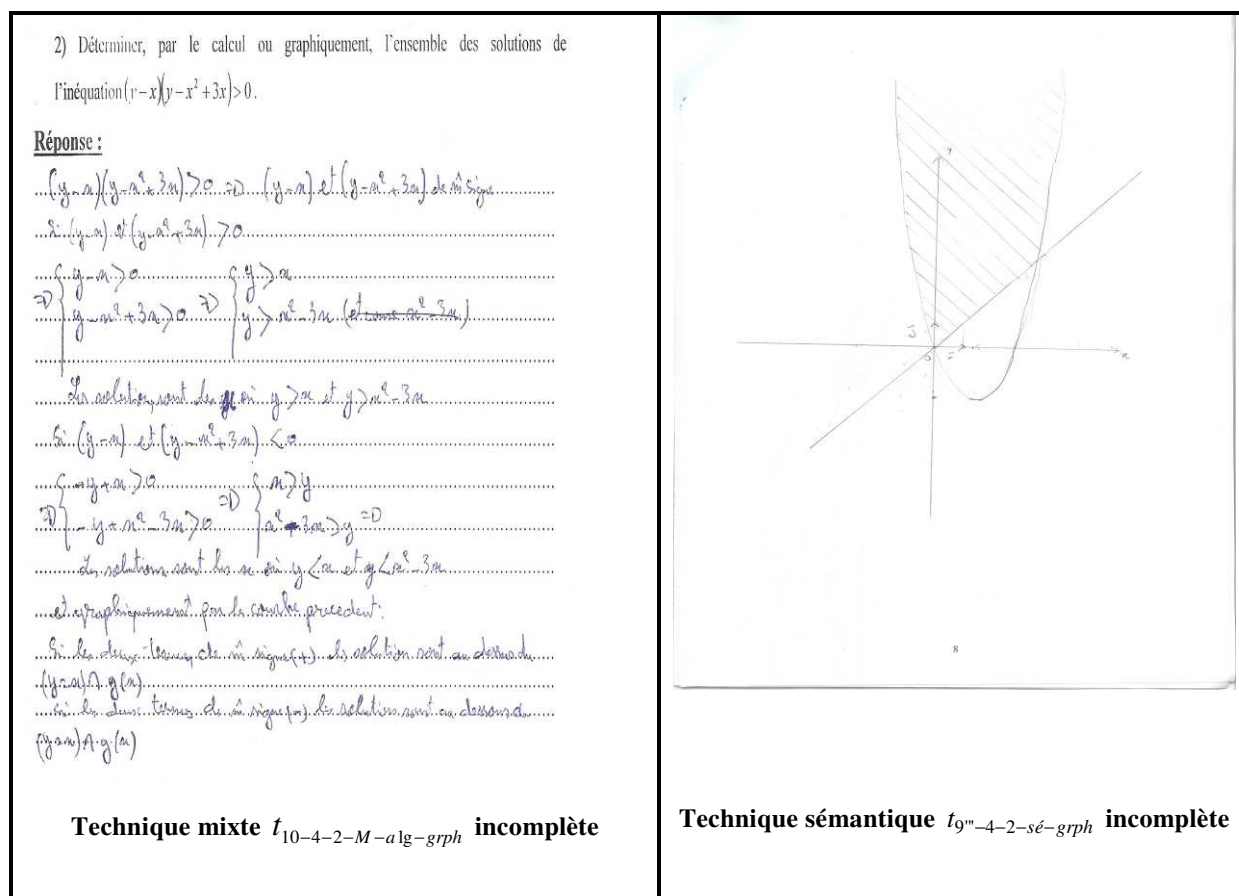 2) Déterminer, par le calcul ou graphiquement, l'ensemble des solutions de
l'inéquation (y − x)(y − x² + 3x) > 0.
Réponse :
(y-x)(y-x²+3x) > 0 => (y-x) et (y-x²+3x) de m̂ signe
Si (y-x) et (y-x²+3x) > 0
=> { y-x > 0 => { y > x
y-x²+3x > 0 y > x²-3x
Les solutions sont les où y > x et y > x²-3x
Si (y-x) et (y-x²+3x) < 0
=> { -y+x > 0 => { x > y
-y+x²-3x > 0 x²-3x > y =>
Les solutions sont les x où y < x et y < x²-3x
et graphiquement par la courbe precedent:
Si les deux termes de m̂ signe (+) les solution sont au dessus du
(y=x) ∩ g(x)
Si les deux termes de m̂ signe (-) les solution sont au dessous du
(y=x) ∩ g(x)
Technique mixte t10−4−2−M−alg−grph incomplète
y
J
O I x
8
Technique sémantique t9'''−4−2−sé−grph incomplète